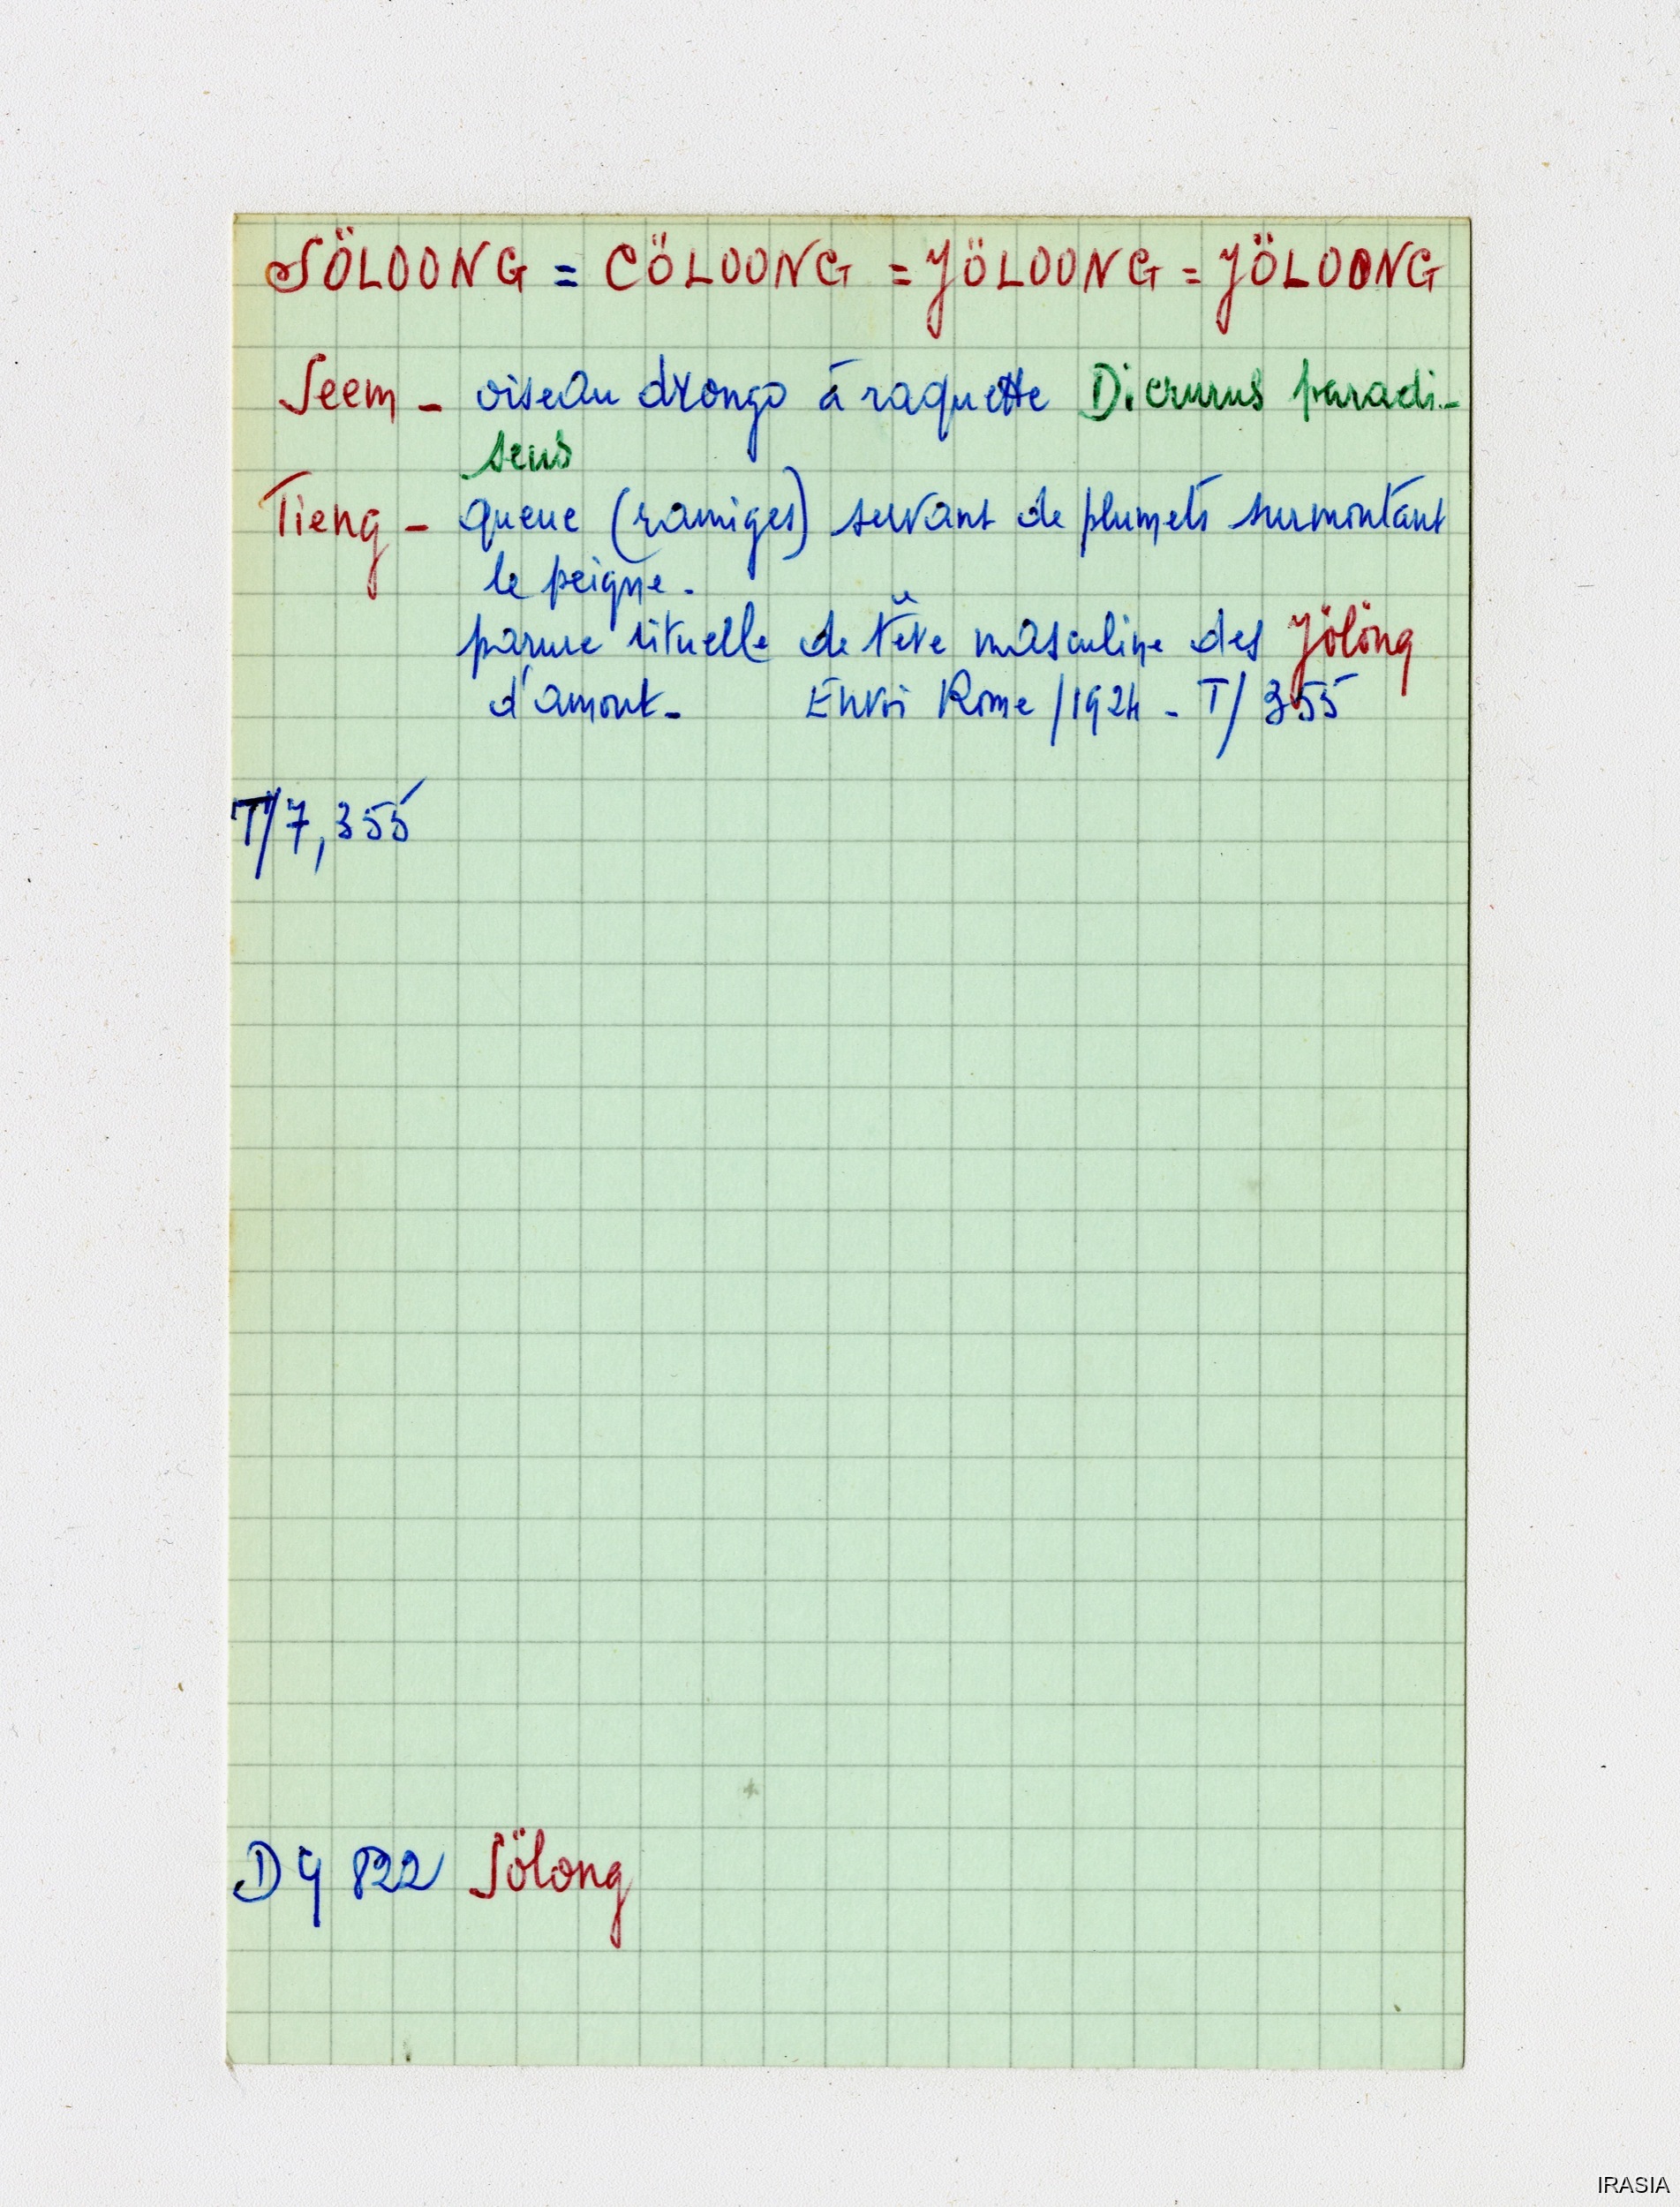 SÖLOONG = CÖLOONG = YÖLOONG = JÖLOONG
Seem - oiseau drongo à raquette Dicrurus paradi-
seus
Tieng - queue (ramiges) servant de plumets surmontant
le peigne.
parure rituelle de tête masculine des Jölöng
d'amont - Envoi Rome /1924 - T/ 355
T/7, 355
D 9 822 Sölong
IRASIA